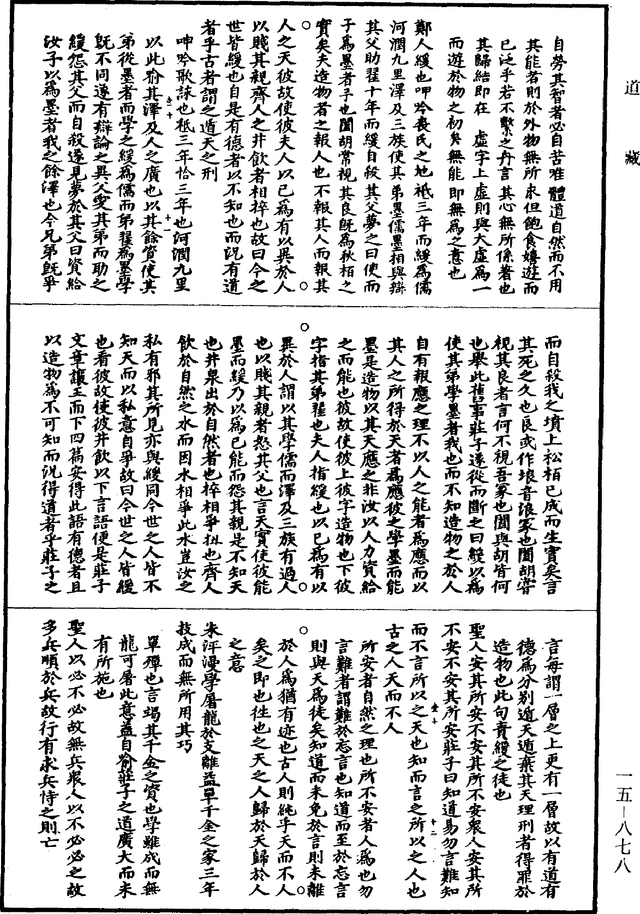 道藏
自勞其智者必自苦唯體道自然而不用
其能者則於外物無所求但飽食嬉遊而
已泛乎若不繫之舟言其心無所係著也
其歸結即在虛字上虛則與大虛為一
而遊於物之初矣無能即無為之意也
鄭人緩也呻吟裘氏之地祇三年而緩為儒
河潤九里澤及三族使其弟墨儒墨相與辯
其父助翟十年而緩自殺其父夢之曰使而
子為墨者予也闔胡嘗視其良既為秋柏之
實矣夫造物者之報人也不報其人而報其
人之天彼故使彼夫人以己為有以異於人
以賤其親齊人之井飲者相捽也故曰今之
世皆緩也自是有德者以不知也而況有道
者乎古者謂之遁天之刑
呻吟歌詠也祇三年恰三年也河潤九里
以此喻其澤及人之廣也以其餘資使其
弟從墨者而學之緩為儒而弟翟為墨學
既不同遂有辯論之異父愛其弟而助之
緩怨其父而自殺遂見夢於其父曰資給
汝子以為墨者我之餘澤也今兄弟既爭
而自殺我之墳上松栢已成而生實矣言
其死之久也良或作埌音浪冢也闔胡嘗
視其良者言何不視吾冢也闔與胡皆何
也舉此舊事莊子遂從而斷之曰緩以為
使其弟學墨者我也而不知造物之於人
自有報應之理不以人之能者為應而以
其人之所得於天者為應彼之學墨而能
墨是造物以其天應之非汝以人力資給
之而能也彼故使彼上彼字造物也下彼
字指其弟翟也夫人指緩也以己為有以
異於人謂以其學儒而澤及三族有過人
也以賤其親者怨其父也言天實使彼能
墨而緩乃以為己能而怨其親是不知天
也井泉出於自然者也捽相爭扭也齊人
飲於自然之水而因水相爭此水豈汝之
私有邪其所見亦與緩同今世之人皆不
知天而以私意自爭故曰今世之人皆緩
也看彼故使彼井飲以下言語便是莊子
文章讓王而下四篇安得此語有德者且
以造物為不可知而況得道者乎莊子之
言每謂一層之上更有一層故以有道有
德為分別遁天遁棄其天理刑者得罪於
造物也此句責緩之徒也
聖人安其所安不安其所不安眾人安其所
不安不安其所安莊子曰知道易勿言難知
而不言所以之天也知而言之所以之人也
古之人天而不人
所安者自然之理也所不安者人為也勿
言難者謂難於忘言也知道而至於忘言
則與天為徒矣知道而未免於言則未離
於人為猶有迹也古人則純乎天而不人
矣之即也徃也之天之人歸於天歸於人
之意
朱泙漫學屠龍於支離益單千金之家三年
技成而無所用其巧
單殫也言竭其千金之資也學雖成而無
龍可屠此意蓋自喻莊子之道廣大而未
有所施也
聖人以必不必故無兵眾人以不必必之故
多兵順於兵故行有求兵恃之則亡
一五—八七八